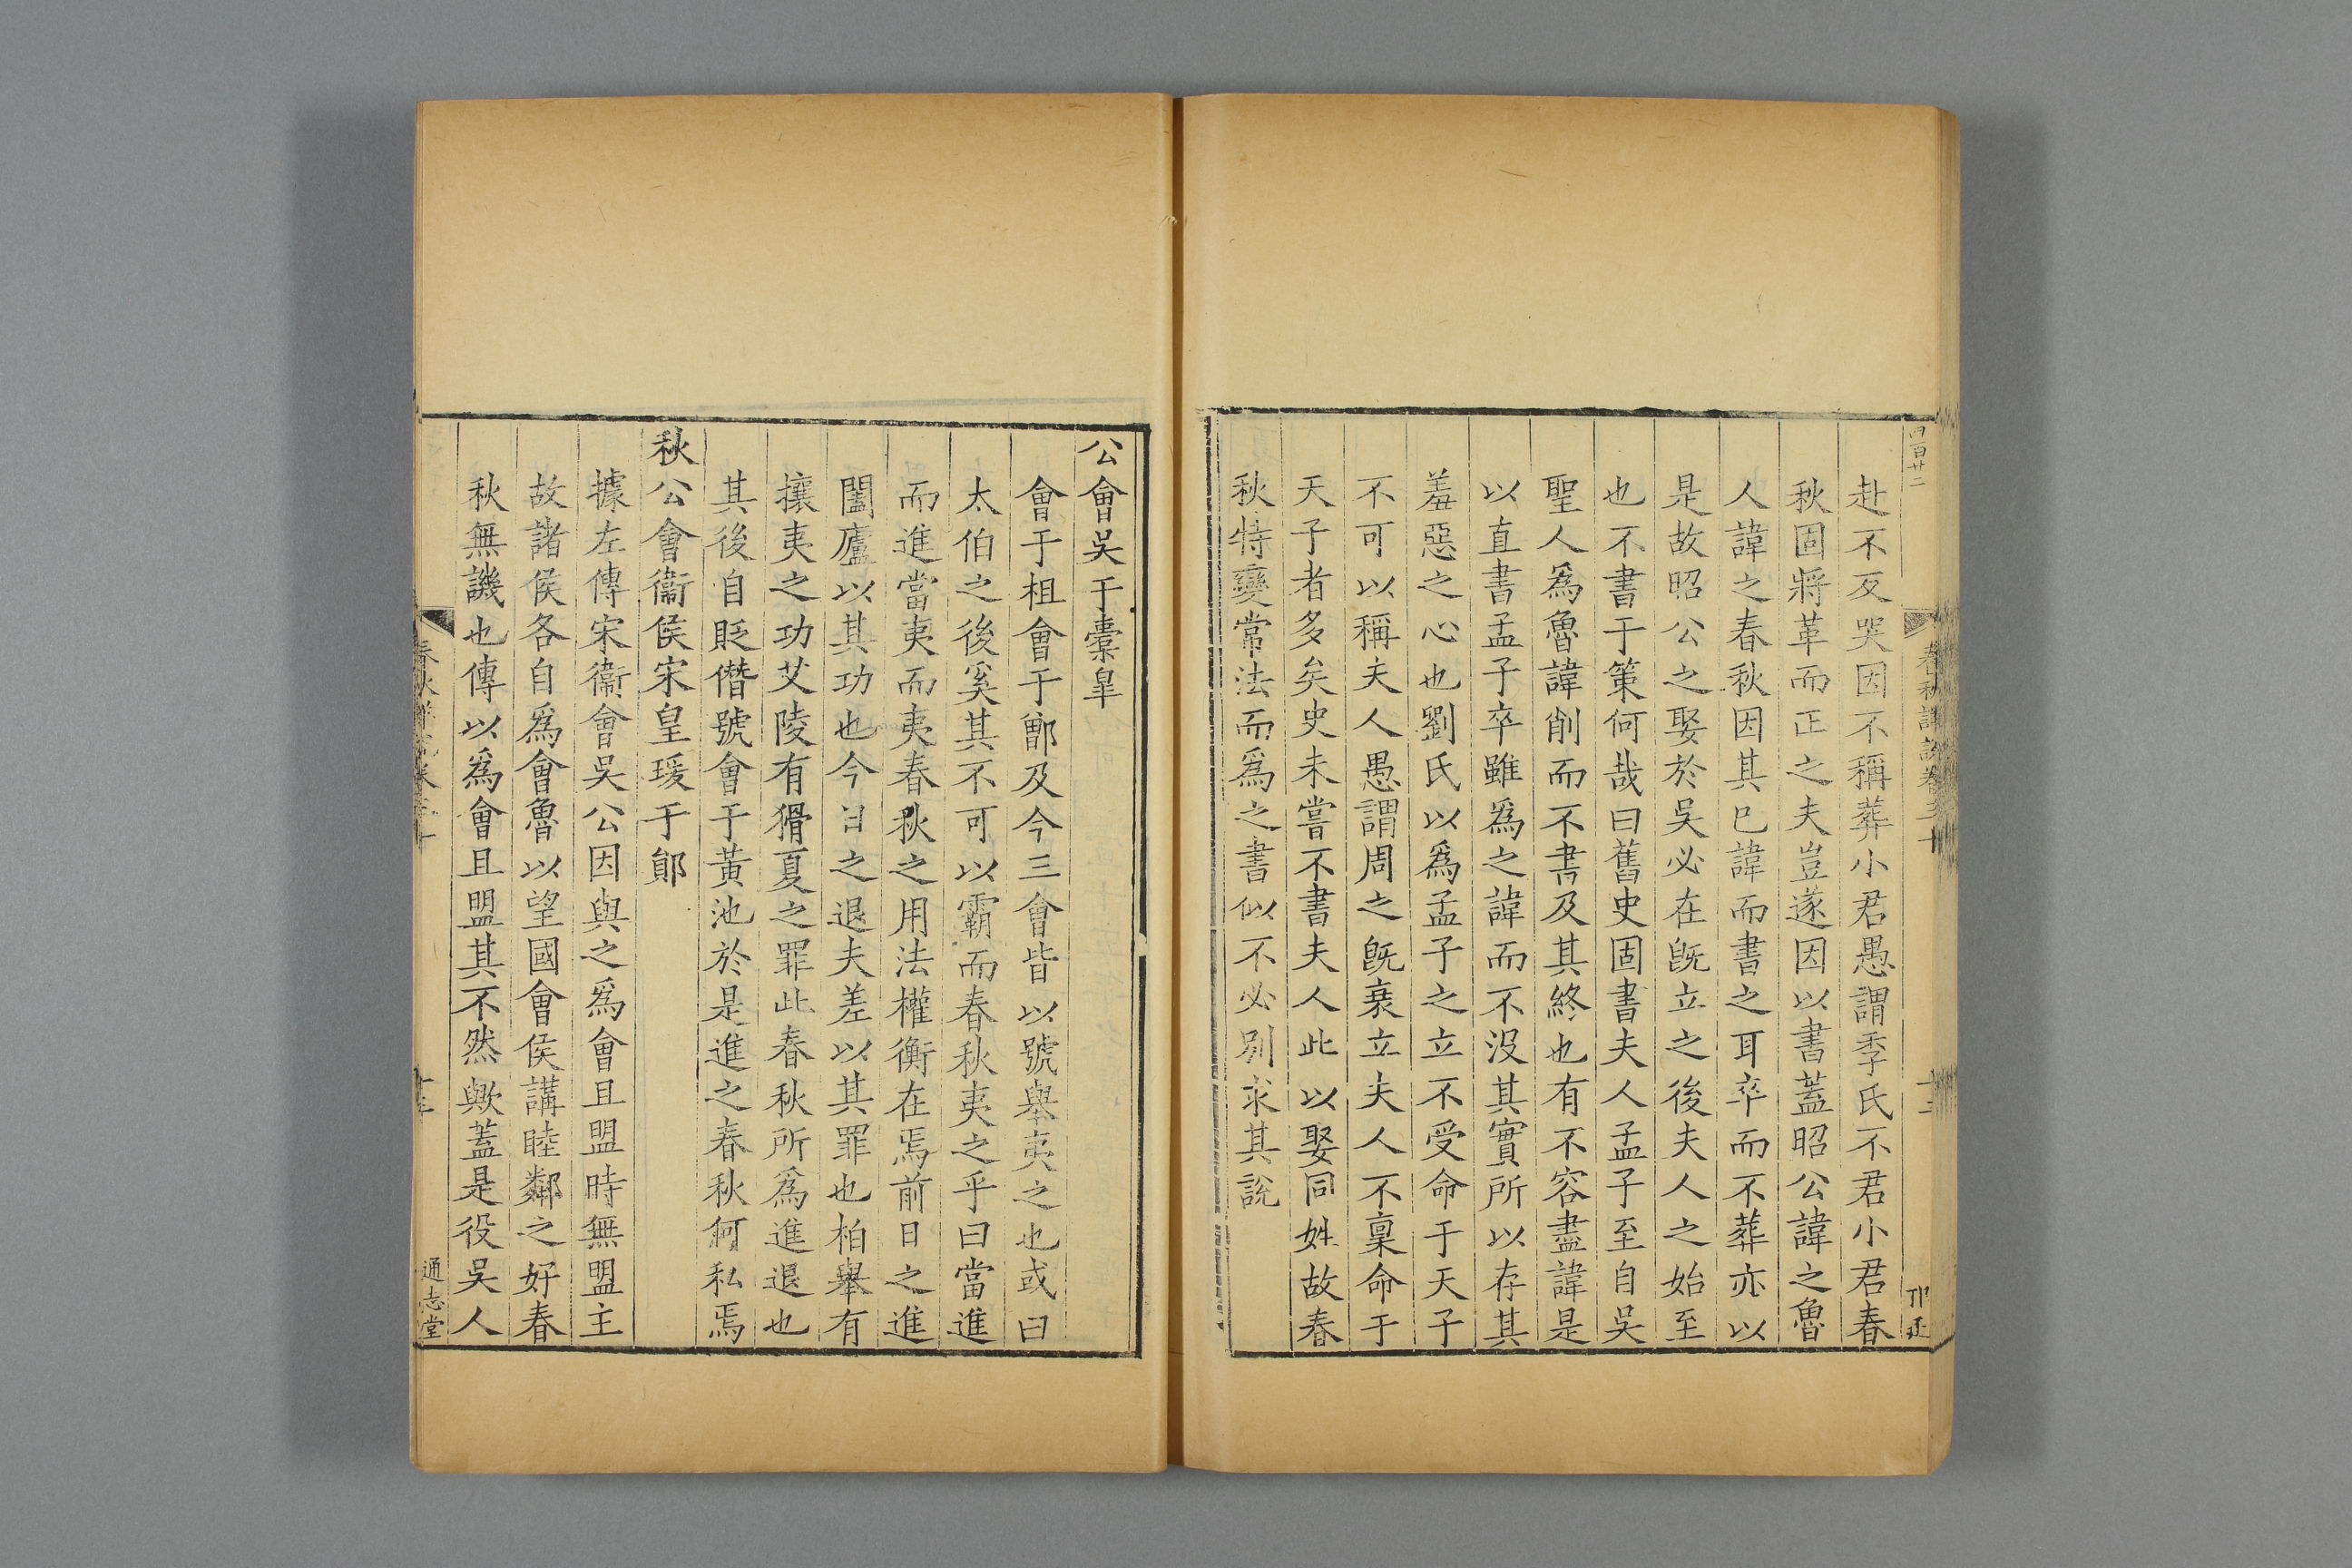 四百廿二
赴不反哭因不稱葬小君愚謂季氏不君小君春
秋固將革而正之夫豈遂因以書蓋昭公諱之魯
人諱之春秋因其已諱而書之耳卒而不葬亦以
是故昭公之娶於吳必在旣立之後夫人之始至
也不書于策何哉曰舊史固書夫人孟子至自吳
聖人爲魯諱削而不書及其終也有不容盡諱是
以直書孟子卒雖爲之諱而不沒其實所以存其
羞惡之心也劉氏以爲孟子之立不受命于天子
不可以稱夫人愚謂周之旣衰立夫人不稟命于
天子者多矣史未嘗不書夫人此以娶同姓故春
秋特變常法而爲之書似不必別求其說
公會吳于橐皐
會于柤會于鄫及今三會皆以號舉夷之也或曰
太伯之後奚其不可以霸而春秋夷之乎曰當進
而進當夷而夷春秋之用法權衡在焉前日之進
闔廬以其功也今日之退夫差以其罪也柏舉有
攘夷之功艾陵有猾夏之罪此春秋所爲進退也
其後自貶僭號會于黃池於是進之春秋何私焉
秋公會衞侯宋皇瑗于鄖
據左傳宋衞會吳公因與之爲會且盟時無盟主
故諸侯各自爲會魯以望國會侯講睦鄰之好春
秋無譏也傳以爲會且盟其不然歟蓋是役吳人
通志堂